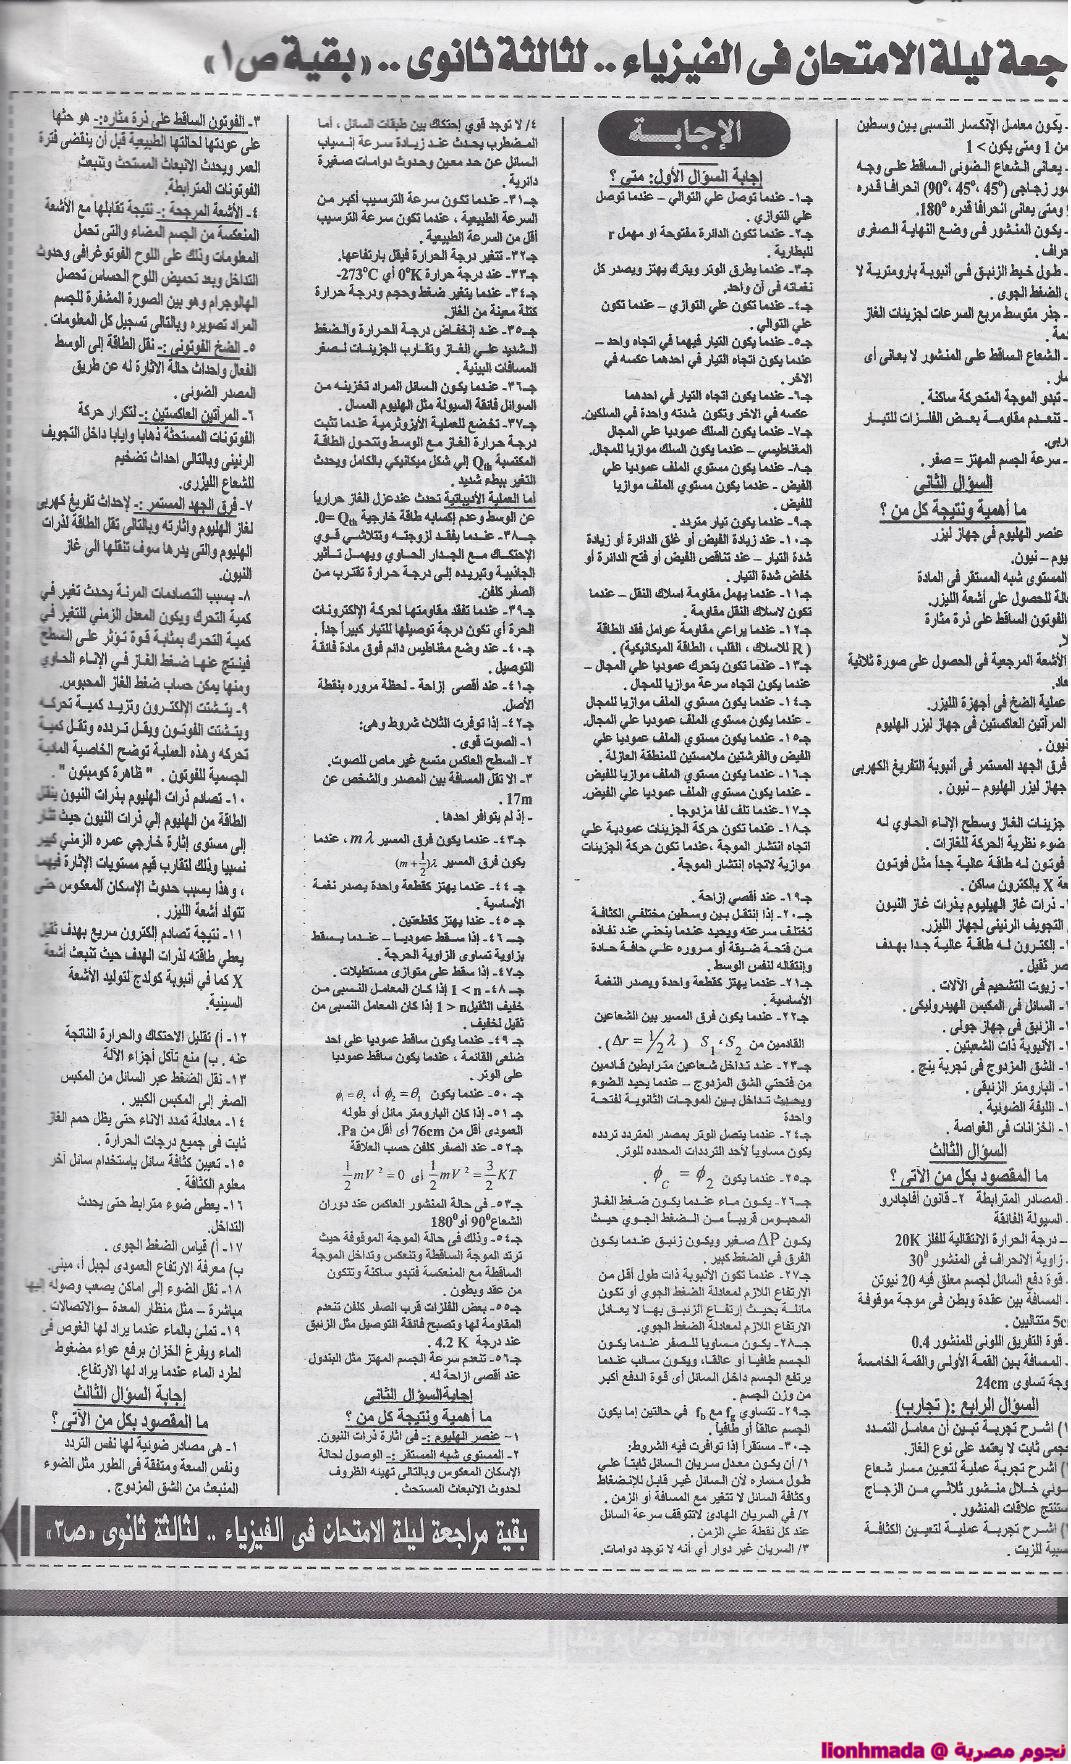 جعة ليلة الامتحان فى الفيزياء .. لثالثة ثانوى .. «بقية ص١»
- يكون معامل الإنكسار النسبى بين وسطين
من 1 ومتى يكون > 1
- يعانى الشعاع الضوئى الساقط على وجه
ور زجاجى (90°، 45°، 45°) انحرافا قدره
ومتى يعانى انحرافا قدره 180°.
- يكون المنشور فى وضع النهاية الصغرى
حراف.
- طول خيط الزئبق فى أنبوبة بارومترية لا
الضغط الجوى .
- جذر متوسط مربع السرعات لجزيئات الغاز
- الشعاع الساقط على المنشور لا يعانى أى
- تبدو الموجة المتحركة ساكنة .
- تنعدم مقاومة بعض الفلزات للتيار
- سرعة الجسم المهتز = صفر .
السؤال الثانى
ما أهمية ونتيجة كل من ؟
عنصر الهليوم فى جهاز ليزر
يوم – نيون.
المستوى شبه المستقر فى المادة
الة للحصول على أشعة الليزر.
الفوتون الساقط على ذرة مثارة
الأشعة المرجعية فى الحصول على صورة ثلاثية
عاد.
عملية الضخ فى أجهزة الليزر.
المرآتين العاكستين فى جهاز ليزر الهليوم
نيون .
فرق الجهد المستمر فى أنبوبة التفريغ الكهربى
جهاز ليزر الهليوم – نيون .
جزيئات الغاز وسطح الإناء الحاوي له
ضوء نظرية الحركة للغازات .
فوتون له طاقة عالية جداً مثل فوتون
ة X بإلكترون ساكن .
- ذرات غاز الهيليوم بذرات غاز النيون
التجويف الرنينى لجهاز الليزر.
- إلكترون له طاقة عالية جدا بهدف
صر ثقيل .
- زيوت التشحيم فى الآلات .
- السائل فى المكبس الهيدروليكى .
- الزئبق فى جهاز جولى .
- الأنبوبة ذات الشعبتين .
- الشق المزدوج فى تجربة ينج .
- البارومتر الزئبقى .
- الليفة الضوئية .
- الخزانات فى الغواصة .
السؤال الثالث
ما المقصود بكل من الآتى ؟
- المصادر المترابطة ٢- قانون أفاجادرو
- السيولة الفائقة
- درجة الحرارة الانتقالية للفلز 20K
- زاوية الانحراف فى المنشور 30°
- قوة دفع السائل لجسم معلق فيه 20 نيوتن
- المسافة بين عقدة وبطن فى موجة موقوفة
متتاليين .
- قوة التفريق اللونى للمنشور 0.4
- المسافة بين القمة الأولى والقمة الخامسة
وجة تساوى 24cm
السؤال الرابع :( تجارب)
١) اشرح تجربة تبين أن معامل التمدد
جمى ثابت لا يعتمد على نوع الغاز.
٢) اشرح تجربة عملية لتعيين مسار شعاع
وئى خلال منشور ثلاثى من الزجاج
ستنتج علاقات المنشور .
٣) اشرح تجربة عملية لتعيين الكثافة
سبية للزيت .
الإجابة
إجابة السؤال الأول: متى ؟
جـ١- عندما توصل علي التوالي – عندما توصل
علي التوازي .
جـ٢- عندما تكون الدائرة مفتوحة او مهمل r
للبطارية .
جـ٣- عندما يطرق الوتر ويترك يهتز ويصدر كل
نغماته فى آن واحد.
جـ٤- عندما تكون علي التوازي – عندما تكون
علي التوالي .
جـ٥- عندما يكون التيار فيهما في اتجاه واحد –
عندما يكون اتجاه التيار في احدهما عكسه في
الاخر .
جـ٦- عندما يكون اتجاه التيار في احدهما
عكسه في الاخر وتكون شدته واحدة في السلكين.
جـ٧- عندما يكون السلك عموديا علي المجال
المغناطيسي – عندما يكون السلك موازيا للمجال.
جـ٨- عندما يكون مستوي الملف عموديا علي
الفيض – عندما يكون مستوي الملف موازيا
للفيض .
جـ٩- عندما يكون تيار متردد .
جـ١٠- عند زيادة الفيض أو غلق الدائرة أو زيادة
شدة التيار – عند تناقص الفيض أو فتح الدائرة أو
خفض شدة التيار .
جـ١١- عندما يهمل مقاومة اسلاك النقل – عندما
تكون لاسلاك النقل مقاومة .
جـ١٢- عندما يراعي مقاومة عوامل فقد الطاقة
( R للاسلاك ، القلب ، الطاقة الميكانيكية) .
جـ١٣- عندما تكون يتحرك عموديا علي المجال –
عندما يكون اتجاه سرعة موازيا للمجال .
جـ١٤- عندما يكون مستوي الملف موازيا للمجال
- عندما يكون مستوي الملف عموديا علي المجال.
جـ١٥- عندما يكون مستوي الملف عموديا علي
الفيض والفرشتين ملامستين للمنطقة العازلة .
جـ١٦- عندما يكون مستوي الملف موازيا للفيض
- عندما يكون مستوي الملف عموديا علي الفيض.
جـ١٧- عندما تلف لفا مزدوجا .
جـ١٨- عندما تكون حركة الجزيئات عمودية علي
اتجاه انتشار الموجة، عندما تكون حركة الجزيئات
موازية لاتجاه إنتشار الموجة .
جـ١٩- عند أقصي إزاحة .
جـ٢٠- إذا إنتقل بين وسطين مختلفي الكثافة
تختلف سرعته ويحيد عندما ينحني عند نفاذه
من فتحة ضيقة أو مروره علي حافة حادة
وإنتقاله لنفس الوسط .
جـ٢١- عندما يهتز كقطعة واحدة ويصدر النغمة
الأساسية .
جـ٢٢- عندما يكون فرق المسير بين الشعاعين
القادمين من S₁، S₂ (Δr = 1/2 λ) .
جـ٢٣- عند تداخل شعاعين مترابطين قادمين
من فتحتي الشق المزدوج – عندما يحيد الضوء
ويحيث تداخل بين الموجات الثانوية لفتحة
واحدة
جـ٢٤- عندما يتصل الوتر بمصدر المتردد تردده
يكون مساوياً لأحد الترددات المحدده للوتر.
جـ٢٥- عندما يكون φc = φ2 .
جـ٢٦- يكون ماء عندما يكون ضغط الغاز
المحبوس قريباً من الضغط الجوي حيث
يكون ΔP صغير ويكون زئبق عندما يكون
الفرق في الضغط كبير .
جـ٢٧- عندما تكون الأنبوبة ذات طول أقل من
الارتفاع اللازم لمعادلة الضغط الجوي أو تكون
مائلة بحيث إرتفاع الزئبق بها لا يعادل
الارتفاع اللازم لمعادلة الضغط الجوي.
جـ٢٨- يكون مساويا للصفر عندما يكون
الجسم طافيا أو عالقا، ويكون سالب عندما
يرتفع الجسم داخل السائل أى قوة الدفع أكبر
من وزن الجسم .
جـ٢٩- تتساوي fg مع fb في حالتين إما يكون
الجسم عالقاً أو طافياً .
جـ٣٠- مستقراً إذا توافرت فيه الشروط:
١/ أن يكون معدل سريان السائل ثابتاً علي
طول مساره لأن السائل غير قابل للإنضغاط
وكثافة السائل لا تتغير مع المسافة أو الزمن .
٢/ في السريان الهادئ لاتتوقف سرعة السائل
عند كل نقطة علي الزمن .
٣/ السريان غير دوار أي أنه لا توجد دوامات.
٤/ لا توجد قوي إحتكاك بين طبقات السائل ، أما
المضطرب يحدث عند زيادة سرعة إنسياب
السائل عن حد معين وحدوث دوامات صغيرة
دائرية .
جـ٣١- عندما تكون سرعة الترسيب أكبر من
السرعة الطبيعية ، عندما تكون سرعة الترسيب
أقل من السرعة الطبيعية .
جـ٣٢- تتغير درجة الحرارة فيقل بارتفاعها.
جـ٣٣- عند درجة حرارة 0°K أي -273°C
جـ٣٤- عندما يتغير ضغط وحجم ودرجة حرارة
كتلة معينة من الغاز.
جـ٣٥- عند إنخفاض درجة الحرارة والضغط
الشديد علي الغاز وتقارب الجزيئات لصغر
المسافات البينية .
جـ٣٦- عندما يكون السائل المراد تخزينه من
السوائل فائقة السيولة مثل الهليوم المسال .
جـ٣٧- تخضع للعملية الأيزوثرمية عندما تثبت
درجة حرارة الغاز مع الوسط وتتحول الطاقة
المكتسبة Qth إلي شكل ميكانيكي بالكامل ويحدث
التغير ببطء شديد .
أما العملية الأديباتية تحدث عندعزل الغاز حرارياً
عن الوسط وعدم إكسابه طاقة خارجية Qth =0.
جـ٣٨- عندما يفقد لزوجته وتتلاشي قوي
الإحتكاك مع الجدار الحاوي ويهمل تأثير
الجاذبية وتبريده إلى درجة حرارة تقترب من
الصفر كلفن.
جـ٣٩- عندما تفقد مقاومتها لحركة الإلكترونات
الحرة أي تكون درجة توصيلها للتيار كبيراً جداً .
جـ٤٠- عند وضع مغناطيس دائم فوق مادة فائقة
التوصيل .
جـ٤١- عند أقصى إزاحة - لحظة مروره بنقطة
الأصل.
جـ٤٢- إذا توفرت الثلاث شروط وهى:
١- الصوت قوى .
٢- السطح العاكس متسع غير ماص للصوت.
٣- الا تقل المسافة بين المصدر والشخص عن
17m .
- إذ لم يتوافر احدها .
جـ٤٣- عندما يكون فرق المسير mλ ، عندما
يكون فرق المسير (m+1/2)λ
جـ٤٤- عندما يهتز كقطعة واحدة يصدر نغمة
الأساسية .
جـ٤٥- عندا يهتز كقطعتين.
جـ٤٦- إذا سقط عموديا – عندما يسقط
بزاوية تساوى الزاوية الحرجة .
جـ٤٧- إذا سقط على متوازى مستطيلات .
جـ٤٨- n < 1 إذا كان المعامل النسبى من
خفيف الثقيل n > 1 إذا كان المعامل النسبى من
ثقيل لخفيف .
جـ٤٩- عندما يكون ساقط عموديا على احد
ضلعى القائمة ، عندما يكون ساقط عموديا
على الوتر .
جـ٥٠- عندما يكون φ₂ = θ₁ أ، φ₁ = θ₂
جـ٥١- إذا كان البارومتر مائل أو طوله
العمودى أقل من 76cm أى أقل من Pa.
جـ٥٢- عند الصفر كلفن حسب العلاقة
1/2 mV² = 3/2 KT أى 1/2 mV² = 0
جـ٥٣- فى حالة المنشور العاكس عند دوران
الشعاع 90° أو 180°
جـ٥٤- وذلك فى حالة الموجة الموقوفة حيث
ترتد الموجة الساقطة وتنعكس وتداخل الموجة
الساقطة مع المنعكسة فتبدو ساكنة وتتكون
من عقد وبطون .
جـ٥٥- بعض الفلزات قرب الصفر كلفن تنعدم
المقاومة لها وتصبح فائقة التوصيل مثل الزئبق
عند درجة 4.2 K .
جـ٥٦- تنعدم سرعة الجسم المهتز مثل البندول
عند أقصى ازاحة له .
إجابة السؤال الثانى
ما أهمية ونتيجة كل من ؟
١- عنصر الهليوم :- فى اثارة ذرات النيون.
٢- المستوى شبه المستقر :- الوصول لحالة
الإسكان المعكوس وبالتالى تهيئه الظروف
لحدوث الانبعاث المستحث .
٣- الفوتون الساقط على ذرة مثاره:- هو حثها
على عودتها لحالتها الطبيعية قبل أن ينقضى فترة
العمر ويحدث الانبعاث المستحث وتنبعث
الفوتونات المترابطة.
٤- الأشعة المرجحة :- نتيجة تقابلها مع الأشعة
المنعكسة من الجسم المضاء والتى تحمل
المعلومات وذلك على اللوح الفوتوغرافى وحدوث
التداخل وبعد تحميض اللوح الحساس تحصل
الهالوجرام وهو بين الصورة المشفرة للجسم
المراد تصويره وبالتالى تسجيل كل المعلومات .
٥- الضخ الفوتونى :- نقل الطاقة إلى الوسط
الفعال واحداث حالة الاثارة له عن طريق
المصدر الضوئى .
٦- المرآتين العاكستين :- لتكرار حركة
الفوتونات المستحثة ذهابا وإيابا داخل التجويف
الرنينى وبالتالى احداث تضخيم
للشعاع الليزرى.
٧- فرق الجهد المستمر :- لإحداث تفريغ كهربى
لغاز الهليوم وإثارته وبالتالى تقل الطاقة لذرات
الهليوم والتى يدرها سوف تنقلها الى غاز
النيون.
٨- بسبب التصادمات المرنة يحدث تغير في
كمية التحرك ويكون المعدل الزمني للتغير في
كمية التحرك بمثابة قوة تؤثر على السطح
فينتج عنها ضغط الغاز في الإناء الحاوي
ومنها يمكن حساب ضغط الغاز المحبوس.
٩- يتشتت الإلكترون وتزيد كمية تحركه
ويتشتت الفوتون ويقل تردده وتقل كمية
تحركه وهذه العملية توضح الخاصية المائية
الجسمية للفوتون . " ظاهرة كومبتون " .
١٠- تصادم ذرات الهليوم بذرات النيون ينقل
الطاقة من الهليوم إلي ذرات النيون حيث تثار
إلى مستوى إثارة خارجي عمره الزمني كبير
نسبيا وذلك لتقارب قيم مستويات الإثارة فيهما
، وهذا يسبب حدوث الإسكان المعكوس حتى
تتولد أشعة الليزر .
١١- نتيجة تصادم إلكترون سريع بهدف ثقيل
يعطي طاقته لذرات الهدف حيث تنبعث أشعة
X كما في أنبوبة كولدج لتوليد الأشعة
السينية.
١٢- أ) تقليل الاحتكاك والحرارة الناتجة
عنه . ب) منع تآكل أجزاء الآلة
١٣- نقل الضغط عبر السائل من المكبس
الصغر إلى المكبس الكبير .
١٤- معادلة تمدد الاناء حتى يظل حجم الغاز
ثابت فى جميع درجات الحرارة .
١٥- تعيين كثافة سائل بإستخدام سائل آخر
معلوم الكثافة .
١٦- يعطى ضوء مترابط حتى يحدث
التداخل.
١٧- أ) قياس الضغط الجوى .
ب) معرفة الارتفاع العمودى لجبل أ، مبنى.
١٨- نقل الضوء إلى اماكن يصعب وصوله إليها
مباشرة – مثل منظار المعدة – والاتصالات .
١٩- تملئ بالماء عندما يراد لها الغوص فى
الماء ويفرغ الخزان برفع عواء مضغوط
لطرد الماء عندما يراد لها الارتفاع.
إجابة السؤال الثالث
ما المقصود بكل من الآتى ؟
١- هى مصادر ضوئية لها نفس التردد
ونفس السعة ومتفقة فى الطور مثل الضوء
المنبعث من الشق المزدوج .
بقية مراجعة ليلة الامتحان فى الفيزياء .. لثالثة ثانوى «ص٣»
نجوم مصرية @ lionhmada